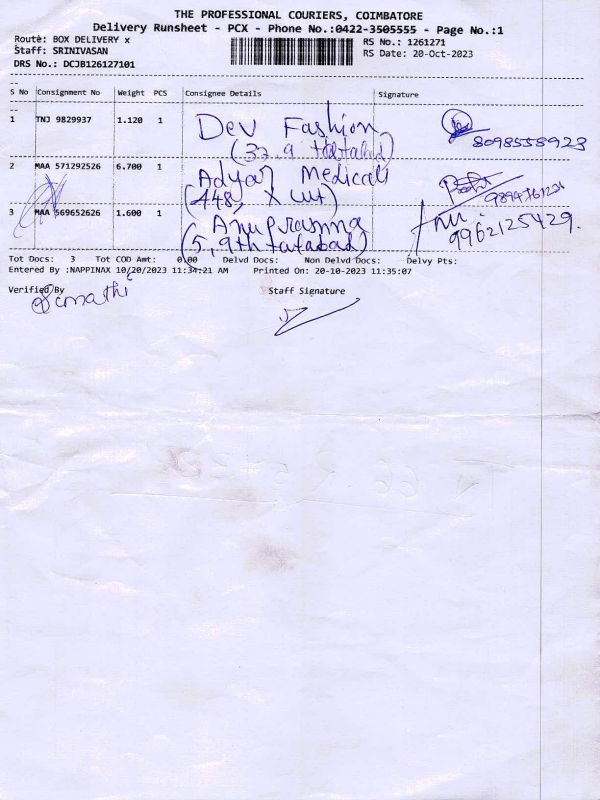 THE PROFESSIONAL COURIERS, COIMBATORE
Delivery Runsheet - PCX - Phone No.:0422-3505555 - Page No.:1
Route: BOX DELIVERY x RS No.: 1261271
Staff: SRINIVASAN RS Date: 20-Oct-2023
DRS No.: DCJB126127101
S No Consignment No Weight PCS Consignee Details Signature
1 TNJ 9829937 1.120 1 Dev Fashion
(32, 9 8098558923
2 MAA 571292526 6.700 1 Adyar Medicals
(448, X cut)
3 MAA 569652626 1.600 1 Anuprasnna 9962125429.
(5, 9th tatabad)
Tot Docs: 3 Tot COD Amt: 0.00 Delvd Docs: Non Delvd Docs: Delvy Pts:
Entered By :NAPPINAX 10/20/2023 11:34:21 AM Printed On: 20-10-2023 11:35:07
Verified By Staff Signature